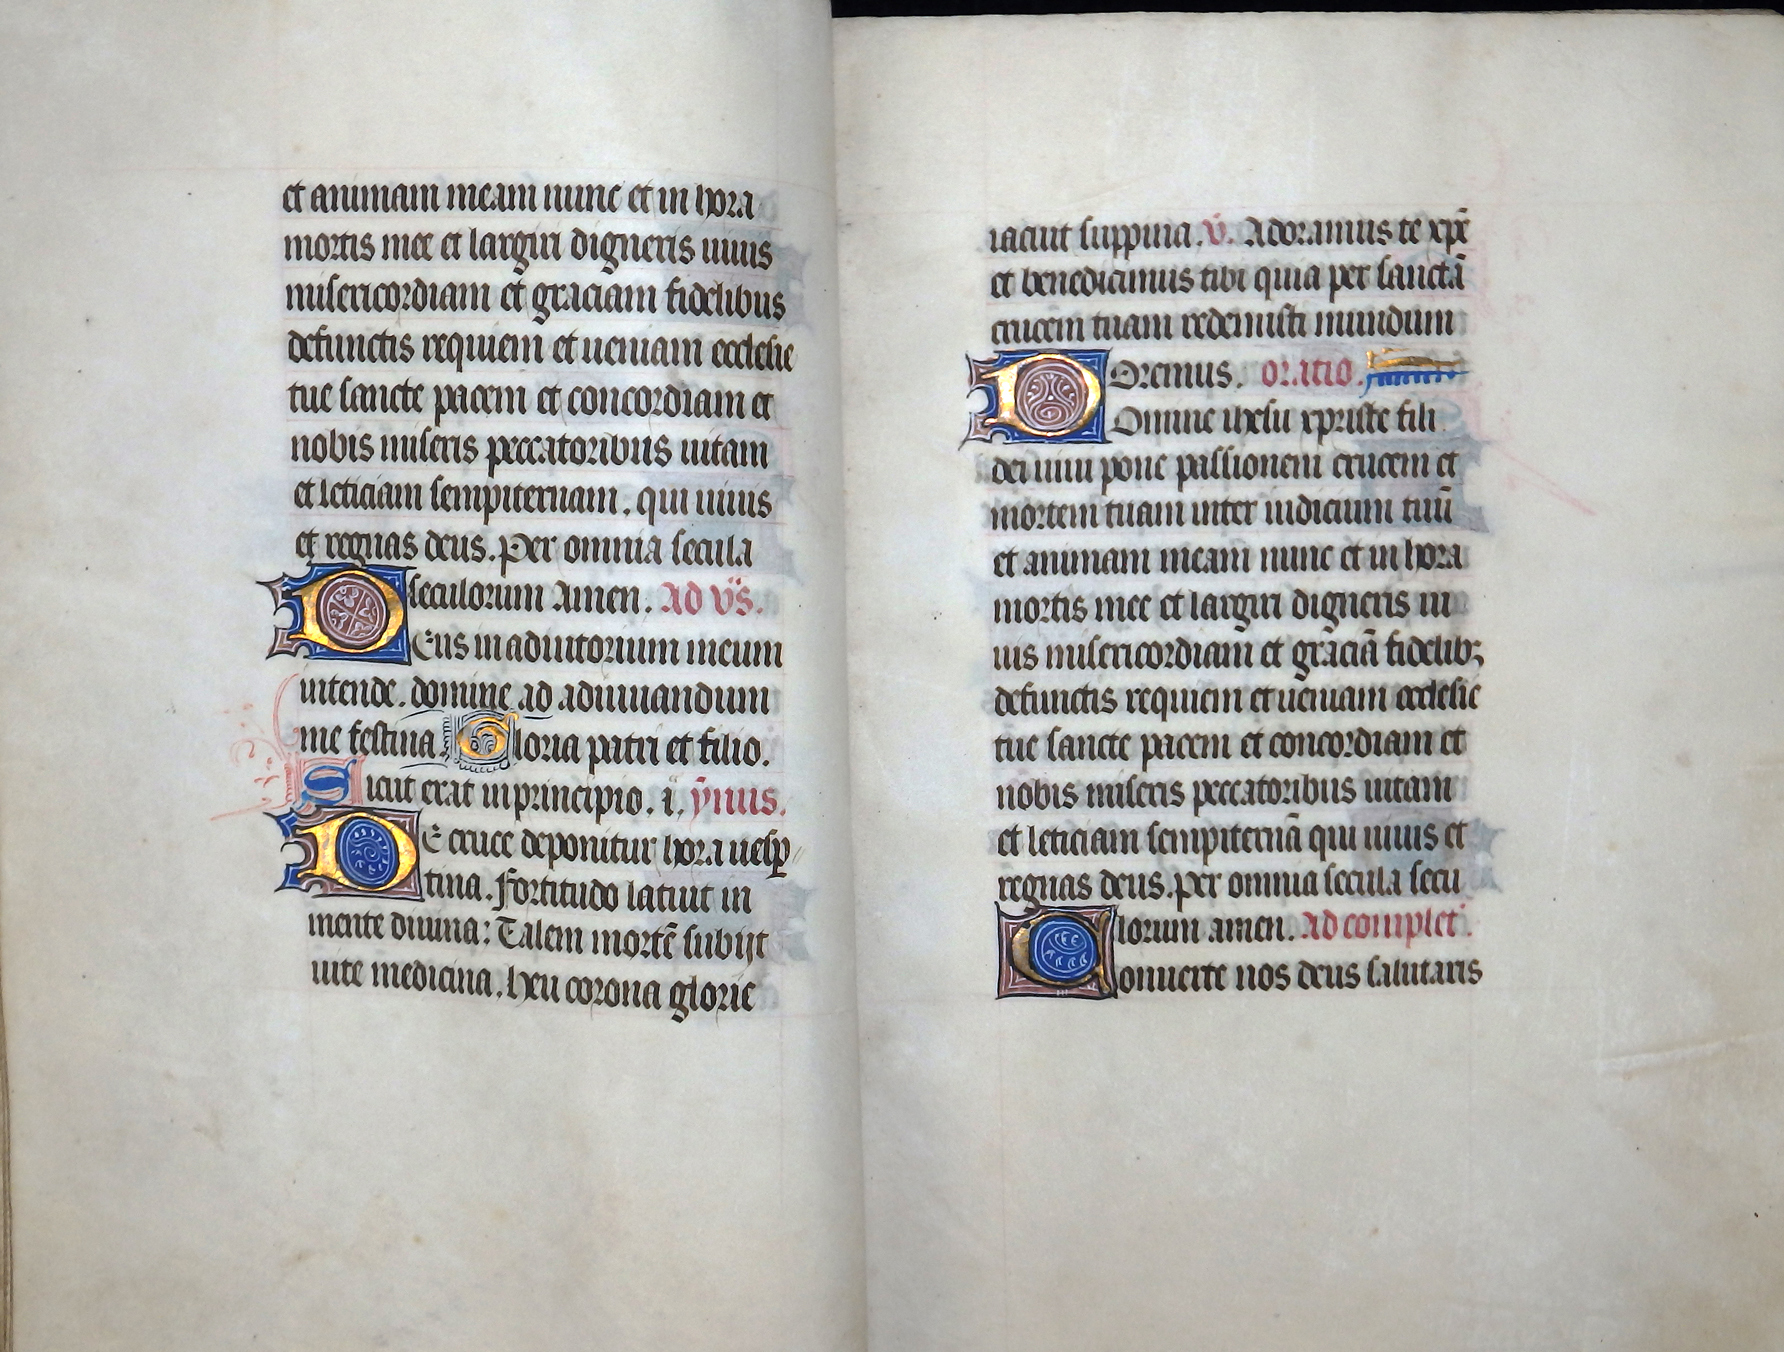 et animam meam nunc et in hora
mortis mee et largiri digneris uiuis
misericordiam et graciam fidelibus
defunctis requiem et ueniam ecclesie
tue sancte pacem et concordiam et
nobis miseris peccatoribus uitam
et leticiam sempiternam. qui uiuis
et regnas deus. Per omnia secula
seculorum Amen. Ad v̈s.
DEus in adiutorium meum
intende. domine ad adiuuandum
me festina. Gloria patri et filio.
Sicut erat in principio. i. ẏmus.
DE cruce deponitur hora uesp̲
tina. Fortitudo latiuit in
mente diuina: Talem mortē subijt
uite medicina. heu corona glorie
iacuit suppina. v̇. Adoramus te xpē
et benedicimus tibi quia per sanctā
crucem tuam redemisti mundum
Oremus. oratio.
DOmine ihesu xpriste fili
dei uiui pone passionem crucem et
mortem tuam inter iudicium tuū
et animam meam nunc et in hora
mortis mee et largiri digneris ui
uis misericordiam et graciā fidelibꝫ
defunctis requiem et ueniam ecclesie
tue sancte pacem et concordiam et
nobis miseris peccatoribus uitam
et leticiam sempiternā qui uiuis et
regnas deus. per omnia secula secu
lorum amen. Ad complet'.
Conuerte nos deus salutaris